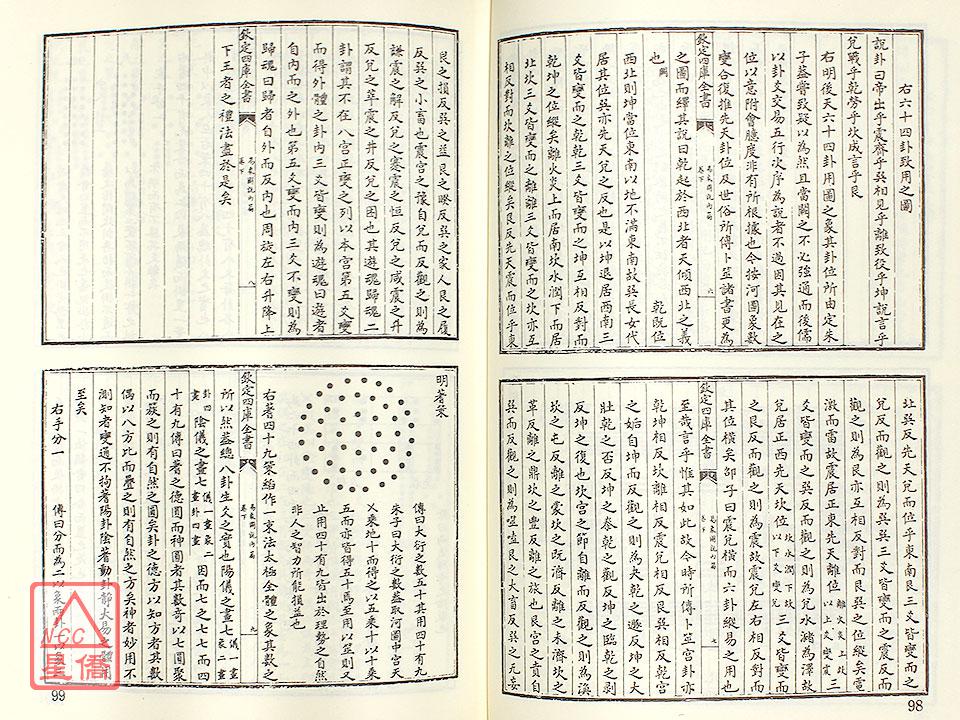 右六十四卦致用之圖
說卦曰帝出乎震齊乎巽相見乎離致役乎坤說言乎
兌戰乎乾勞乎坎成言乎艮
右明後天六十四卦用圖之象其卦位所由定朱
子葢嘗致疑以為然且當闕之不必強通而後儒
以卦爻交易五行次序為說者不過因其見在之
位以意附會臆度非有所根據也今按河圖象數
欽定四庫全書 易象圖說內篇 卷下 六
變合復推先天卦位及世俗所傳卜筮諸書更為
之圖而繹其說曰乾起於西北者天傾西北之義
也 闕 乾既位
西北則坤當位東南以地不滿東南故巽長女代
居其位巽亦先天兌之反也是以坤退居西南三
爻皆變而之乾乾三爻皆變而之坤互相反對而
乾坤之位縱矣離火炎上而居南坎水潤下而居
北坎三爻皆變而之離離三爻皆變而之坎亦互
相反對而坎離之位縱矣艮反先天震而位乎東
北巽反先天兌而位乎東南艮三爻皆變而之
兌反而觀之則為巽巽三爻皆變而之震反而
觀之則為艮亦互相反對而艮巽之位縱矣電
激而雷故震居正東先天離位離火炎上故以上爻變震三
爻皆變而之巽反而觀之則為兌水瀦為澤故
兌居正西先天坎位坎水潤下故以下爻變兌三爻皆變而
之艮反而觀之則為震故震兌左右相反對而
欽定四庫全書 易象圖說內篇 卷下 七
其位橫矣邵子曰震兌橫而六卦縱易之用也
至哉言乎惟其如此故今時所傳卜筮宮卦亦
乾坤相反坎離相反震兌相反艮巽相反乾宮
之姤自坤而反觀之則為夬乾之遯反坤之大
壯乾之否反坤之泰乾之觀反坤之臨乾之剥
反坤之復也坎宮之節自離而反觀之則為渙
坎之屯反離之蒙坎之既濟反離之未濟坎之
革反離之鼎坎之豐反離之旅也艮宮之賁自
巽而反觀之則為噬嗑艮之大畜反巽之无妄
98
艮之損反巽之益艮之睽反巽之家人艮之履
反巽之小畜也震宮之豫自兌而反觀之則為
謙震之解反兌之蹇震之恒反兌之咸震之升
反兌之萃震之井反兌之困也其遊魂歸魂二
卦謂其不在八宮正變之列以本宮第五爻變
而得外體之卦内三爻皆變則為遊魂曰遊者
自内而之外也第五爻變而内三爻不變則為
歸魂曰歸者自外而反内也周旋左右升降上
欽定四庫全書 易象圖說內篇 卷下 八
下王者之禮法盡於是矣
明蓍策
傳曰大衍之數五十其用四十有九
朱子曰大衍之數葢取河圖中宮天
五乘地十而得之以五乘十以十乘
五而亦皆得五十焉至用以筮則又
止用四十有九皆出於理勢之自然
非人之智力所能損益也
右蓍四十九策總作一束法太極全體之象其數之
欽定四庫全書 易象圖說內篇 卷下 九
所以然葢總八卦生爻之實也陽儀之畫七儀一畫象二畫
卦四畫陰儀之畫七儀一畫象二畫卦四畫因而七之七七而四
十有九傳曰蓍之德圓而神圓者其數奇以七圓聚
而簇之則有自然之圓矣卦之德方以知方者其數
偶以八方比而疊之則有自然之方矣神者妙用不
測知者變通不拘蓍陽卦陰蓍動卦靜大易之體用
至矣
右手分一 傳曰分而為二以象兩
99
NCC
星僑